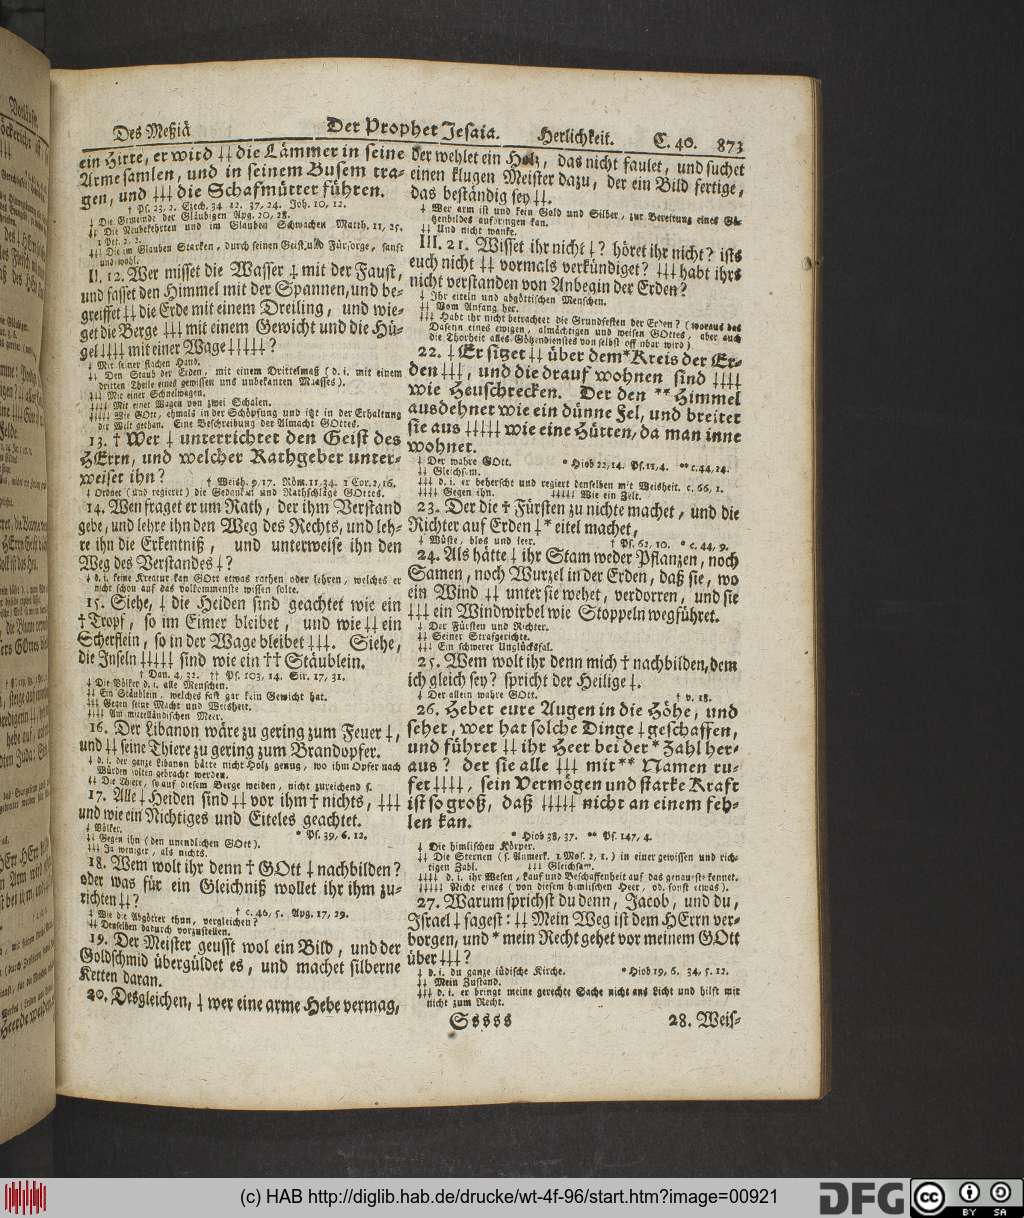 Des Meßiä Der Prophet Jesaia. Herlichkeit. C. 40. 873
ein Hirte, er wird ⸸⸸ die Lämmer in seine
Arme samlen, und in seinem Busem tra-
gen, und ⸸⸸⸸ die Schafmütter führen.
† Ps. 23, 2. Ezech. 34, 12. 37, 24. Joh. 10, 12.
⸸ Die Gemeinde der Gläubigen Apg. 20, 28.
⸸⸸ Die Neubekehrten und im Glauben Schwachen Matth. 11, 25.
1 Pet. 2, 2.
⸸⸸⸸ Die im Glauben Starken, durch seinen Geist und Fürsorge, sanft
und wohl.
II. 12. Wer misset die Wasser ⸸ mit der Faust,
und fasset den Himmel mit der Spannen, und be-
greiffet ⸸⸸ die Erde mit einem Dreiling, und wie-
get die Berge ⸸⸸⸸ mit einem Gewicht und die Hü-
gel ⸸⸸⸸⸸ mit einer Wage ⸸⸸⸸⸸⸸?
⸸ Mit seiner flachen Hand.
⸸⸸ Den Staub der Erden, mit einem Drittelmaß (d. i. mit einem
dritten Theile eines gewissen uns unbekanten Maasses).
⸸⸸⸸ Mit einer Schnelwagen.
⸸⸸⸸⸸ Mit einer Wagen von zwei Schalen.
⸸⸸⸸⸸⸸ Wie GOtt, ehmals in der Schöpfung und itzt in der Erhaltung
die Welt gethan. Eine Beschreibung der Almacht GOttes.
13. † Wer ⸸ unterrichtet den Geist des
HErrn, und welcher Rathgeber unter-
weiset ihn?
† Weish. 9, 17. Röm. 11, 34. 1 Cor. 2, 16.
⸸ Ordnet (und regieret) die Gedanken und Rathschläge GOttes.
14. Wen fraget er um Rath, der ihm Verstand
gebe, und lehre ihn den Weg des Rechts, und leh-
re ihn die Erkentniß, und unterweise ihn den
Weg des Verstandes ⸸?
⸸ d. i. keine Kreatur kan GOtt etwas rathen oder lehren, welches er
nicht schon auf das volkommenste wissen solte.
15. Siehe, ⸸ die Heiden sind geachtet wie ein
† Tropf, so im Eimer bleibet, und wie ⸸⸸ ein
Scherflein, so in der Wage bleibet ⸸⸸⸸. Siehe,
die Inseln ⸸⸸⸸⸸ sind wie ein †† Stäublein.
† Dan. 4, 32. †† Ps. 103, 14. Sir. 17, 31.
⸸ Die Völker d. i. alle Menschen.
⸸⸸ Ein Stäublein, welches fast gar kein Gewicht hat.
⸸⸸⸸ Gegen seine Macht und Weisheit.
⸸⸸⸸⸸ Am mittelländischen Meer.
16. Der Libanon wäre zu gering zum Feuer ⸸,
und ⸸⸸ seine Thiere zu gering zum Brandopfer.
⸸ d. i. der ganze Libanon hätte nicht Holz genug, wo ihm Opfer nach
Würden solten gebracht werden.
⸸⸸ Die Thiere, so auf diesem Berge weiden, nicht zureichend s.
17. Alle ⸸ Heiden sind ⸸⸸ vor ihm † nichts, ⸸⸸⸸
und wie ein Nichtiges und Eiteles geachtet.
⸸ Völker. * Ps. 39, 6. 12.
⸸⸸ Gegen ihn (den unendlichen GOtt).
⸸⸸⸸ Ja weniger, als nichts.
18. Wem wolt ihr denn † GOtt ⸸ nachbilden?
oder was für ein Gleichniß wollet ihr ihm zu-
richten ⸸⸸?
† c. 46, 5. Apg. 17, 29.
⸸ Wie die Abgötter thun, vergleichen?
⸸⸸ Denselben dadurch vorzustellen.
19. Der Meister geusst wol ein Bild, und der
Goldschmid übergüldet es, und machet silberne
Ketten daran.
20. Desgleichen, ⸸ wer eine arme Hebe vermag,
der wehlet ein Holz, das nicht faulet, und suchet
einen klugen Meister dazu, der ein Bild fertige,
das beständig sey ⸸⸸.
⸸ Wer arm ist und kein Gold und Silber, zur Bereitung eines Gö-
tzenbildes aufbringen kan.
⸸⸸ Und nicht wanke.
III. 21. Wisset ihr nicht ⸸? höret ihr nicht? ists
euch nicht ⸸⸸ vormals verkündiget? ⸸⸸⸸ habt ihrs
nicht verstanden von Anbegin der Erden?
⸸ Ihr eiteln und abgöttischen Menschen.
⸸⸸ Vom Anfang her.
⸸⸸⸸ Habt ihr nicht betrachtet die Grundfesten der Erden? (woraus das
Daseyn eines ewigen, almächtigen und weisen GOttes, aber auch
die Thorheit alles Götzendienstes von selbst offenbar wird)
22. ⸸ Er sitzet ⸸⸸ über dem * Kreis der Er-
den ⸸⸸⸸, und die drauf wohnen sind ⸸⸸⸸⸸
wie Heuschrecken. Der den ** Himmel
ausdehnet wie ein dünne Fel, und breitet
sie aus ⸸⸸⸸⸸⸸ wie eine Hütten, da man inne
wohnet.
⸸ Der wahre GOtt. * Hiob 22, 14. Ps. 11, 4. ** c. 44, 24.
⸸⸸ Gleichsam.
⸸⸸⸸ d. i. er beherscht und regiert denselben mit Weisheit. c. 66, 1.
⸸⸸⸸⸸ Gegen ihn. ⸸⸸⸸⸸⸸ Wie ein Zelt.
23. Der die † Fürsten zu nichte machet, und die
Richter auf Erden ⸸ * eitel machet,
⸸ Wüste, blos und leer. † Ps. 62, 10. * c. 44, 9.
24. Als hätte ⸸ ihr Stam weder Pflanzen, noch
Samen, noch Wurzel in der Erden, daß sie, wo
ein Wind ⸸⸸ unter sie wehet, verdorren, und sie
⸸⸸⸸ ein Windwirbel wie Stoppeln wegführet.
⸸ Der Fürsten und Richter.
⸸⸸ Seiner Strafgerichte.
⸸⸸⸸ Ein schwerer Unglücksfal.
25. Wem wolt ihr denn mich † nachbilden, dem
ich gleich sey? spricht der Heilige ⸸.
⸸ Der allein wahre GOtt. † v. 18.
26. Hebet eure Augen in die Höhe, und
sehet, wer hat solche Dinge ⸸ geschaffen,
und führet ⸸⸸ ihr Heer bei der * Zahl her-
aus? der sie alle ⸸⸸⸸ mit ** Namen ru-
fet ⸸⸸⸸⸸, sein Vermögen und starke Kraft
ist so groß, daß ⸸⸸⸸⸸⸸ nicht an einem feh-
len kan.
* Hiob 38, 37. ** Ps. 147, 4.
⸸ Die himlischen Körper.
⸸⸸ Die Sternen (s. Anmerk. 1 Mos. 2, 1.) in einer gewissen und rich-
tigen Zahl. ⸸⸸⸸ Gleichsam.
⸸⸸⸸⸸ d. i. ihr Wesen, Lauf und Beschaffenheit auf das genaueste kennet.
⸸⸸⸸⸸⸸ Nicht eines (von diesem himlischen Heer, od. sonst etwas).
27. Warum sprichst du denn, Jacob, und du,
Israel ⸸ sagest: ⸸⸸ Mein Weg ist dem HErrn ver-
borgen, und * mein Recht gehet vor meinem GOtt
über ⸸⸸⸸?
⸸ d. i. du ganze jüdische Kirche. * Hiob 19, 6. 34, 5. 12.
⸸⸸ Mein Zustand.
⸸⸸⸸ d. i. er bringt meine gerechte Sache nicht ans Licht und hilft mir
nicht zum Recht.
Sssss 28. Weis-
(c) HAB http://diglib.hab.de/drucke/wt-4f-96/start.htm?image=00921
DFG
cc BY SA